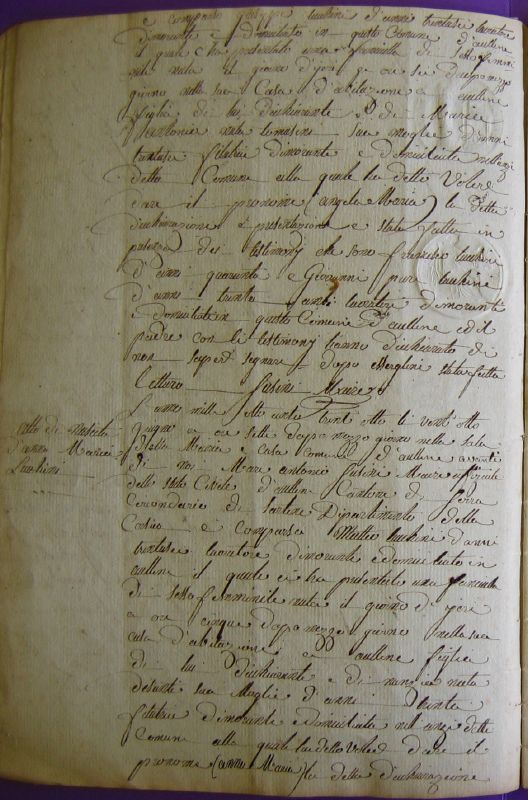 e comparso Giuseppe Lucchini d'anni trentasei lavoratore
dimorante e domiciliato in questo Comune d'Aullene
il quale ci ha presentato una fanciulla di sesso femmi
nile nata il giorno d'jeri a ore sei dopo mezzo
giorno nella sua Casa d'abitazione a Aullene
figlia di lui dichiarante e di Maria
Antonia nata Tomasini sua moglie d'anni
trentasei filatrice dimorante e domiciliata nell'anzi
detta Comune alla quale ha detto Voler
dare il pronome (Angela Maria) la detta
dichiarazione e presentazione e stata fatta in
presenza dei testimonj che sono Francesco Lucchini
d'anni quaranta e Giovanni pure Lucchini
d'anni trenta ambi lavoratori dimoranti
e domiciliati in questo Comune d'Aullene ed il
padre con li testimonj hanno dichiarato di
non saper segnare dopo essergine stata fatta
lettura Susini Maire
L'anno mille otto cento vent'otto li vent'otto
giugno a ore sette dopo mezzo giorno nella Sala
della Mairia e casa Comunale d'Aullene avanti
di noi Marc'Antonio Susini Maire uffiziale
dell'Stato Civile d'Aullene Cantone di Serra
Circondario di Sartene Dipartimento della
Corsica e Comparso Matteo Lucchini d'anni
trentasei lavoratore dimorante e domiciliato in
Aullene il quale ci ha presentato una fanciulla
di sesso femminile nata il giorno d'jeri
a ore cinque dopo mezzo giorno nella sua
casa d'abitazione a Aullene figlia
di lui dichiarante e di nunzia nata
desanti sua Moglie d'anni trenta
filatrice dimorante e Domiciliata nell'anzi detta
Comune alla quale ha detto Voler dare il
pronome (Anna Maria) la detta dichiarazione
Atto di Nascita
d'Anna Maria
Lucchini